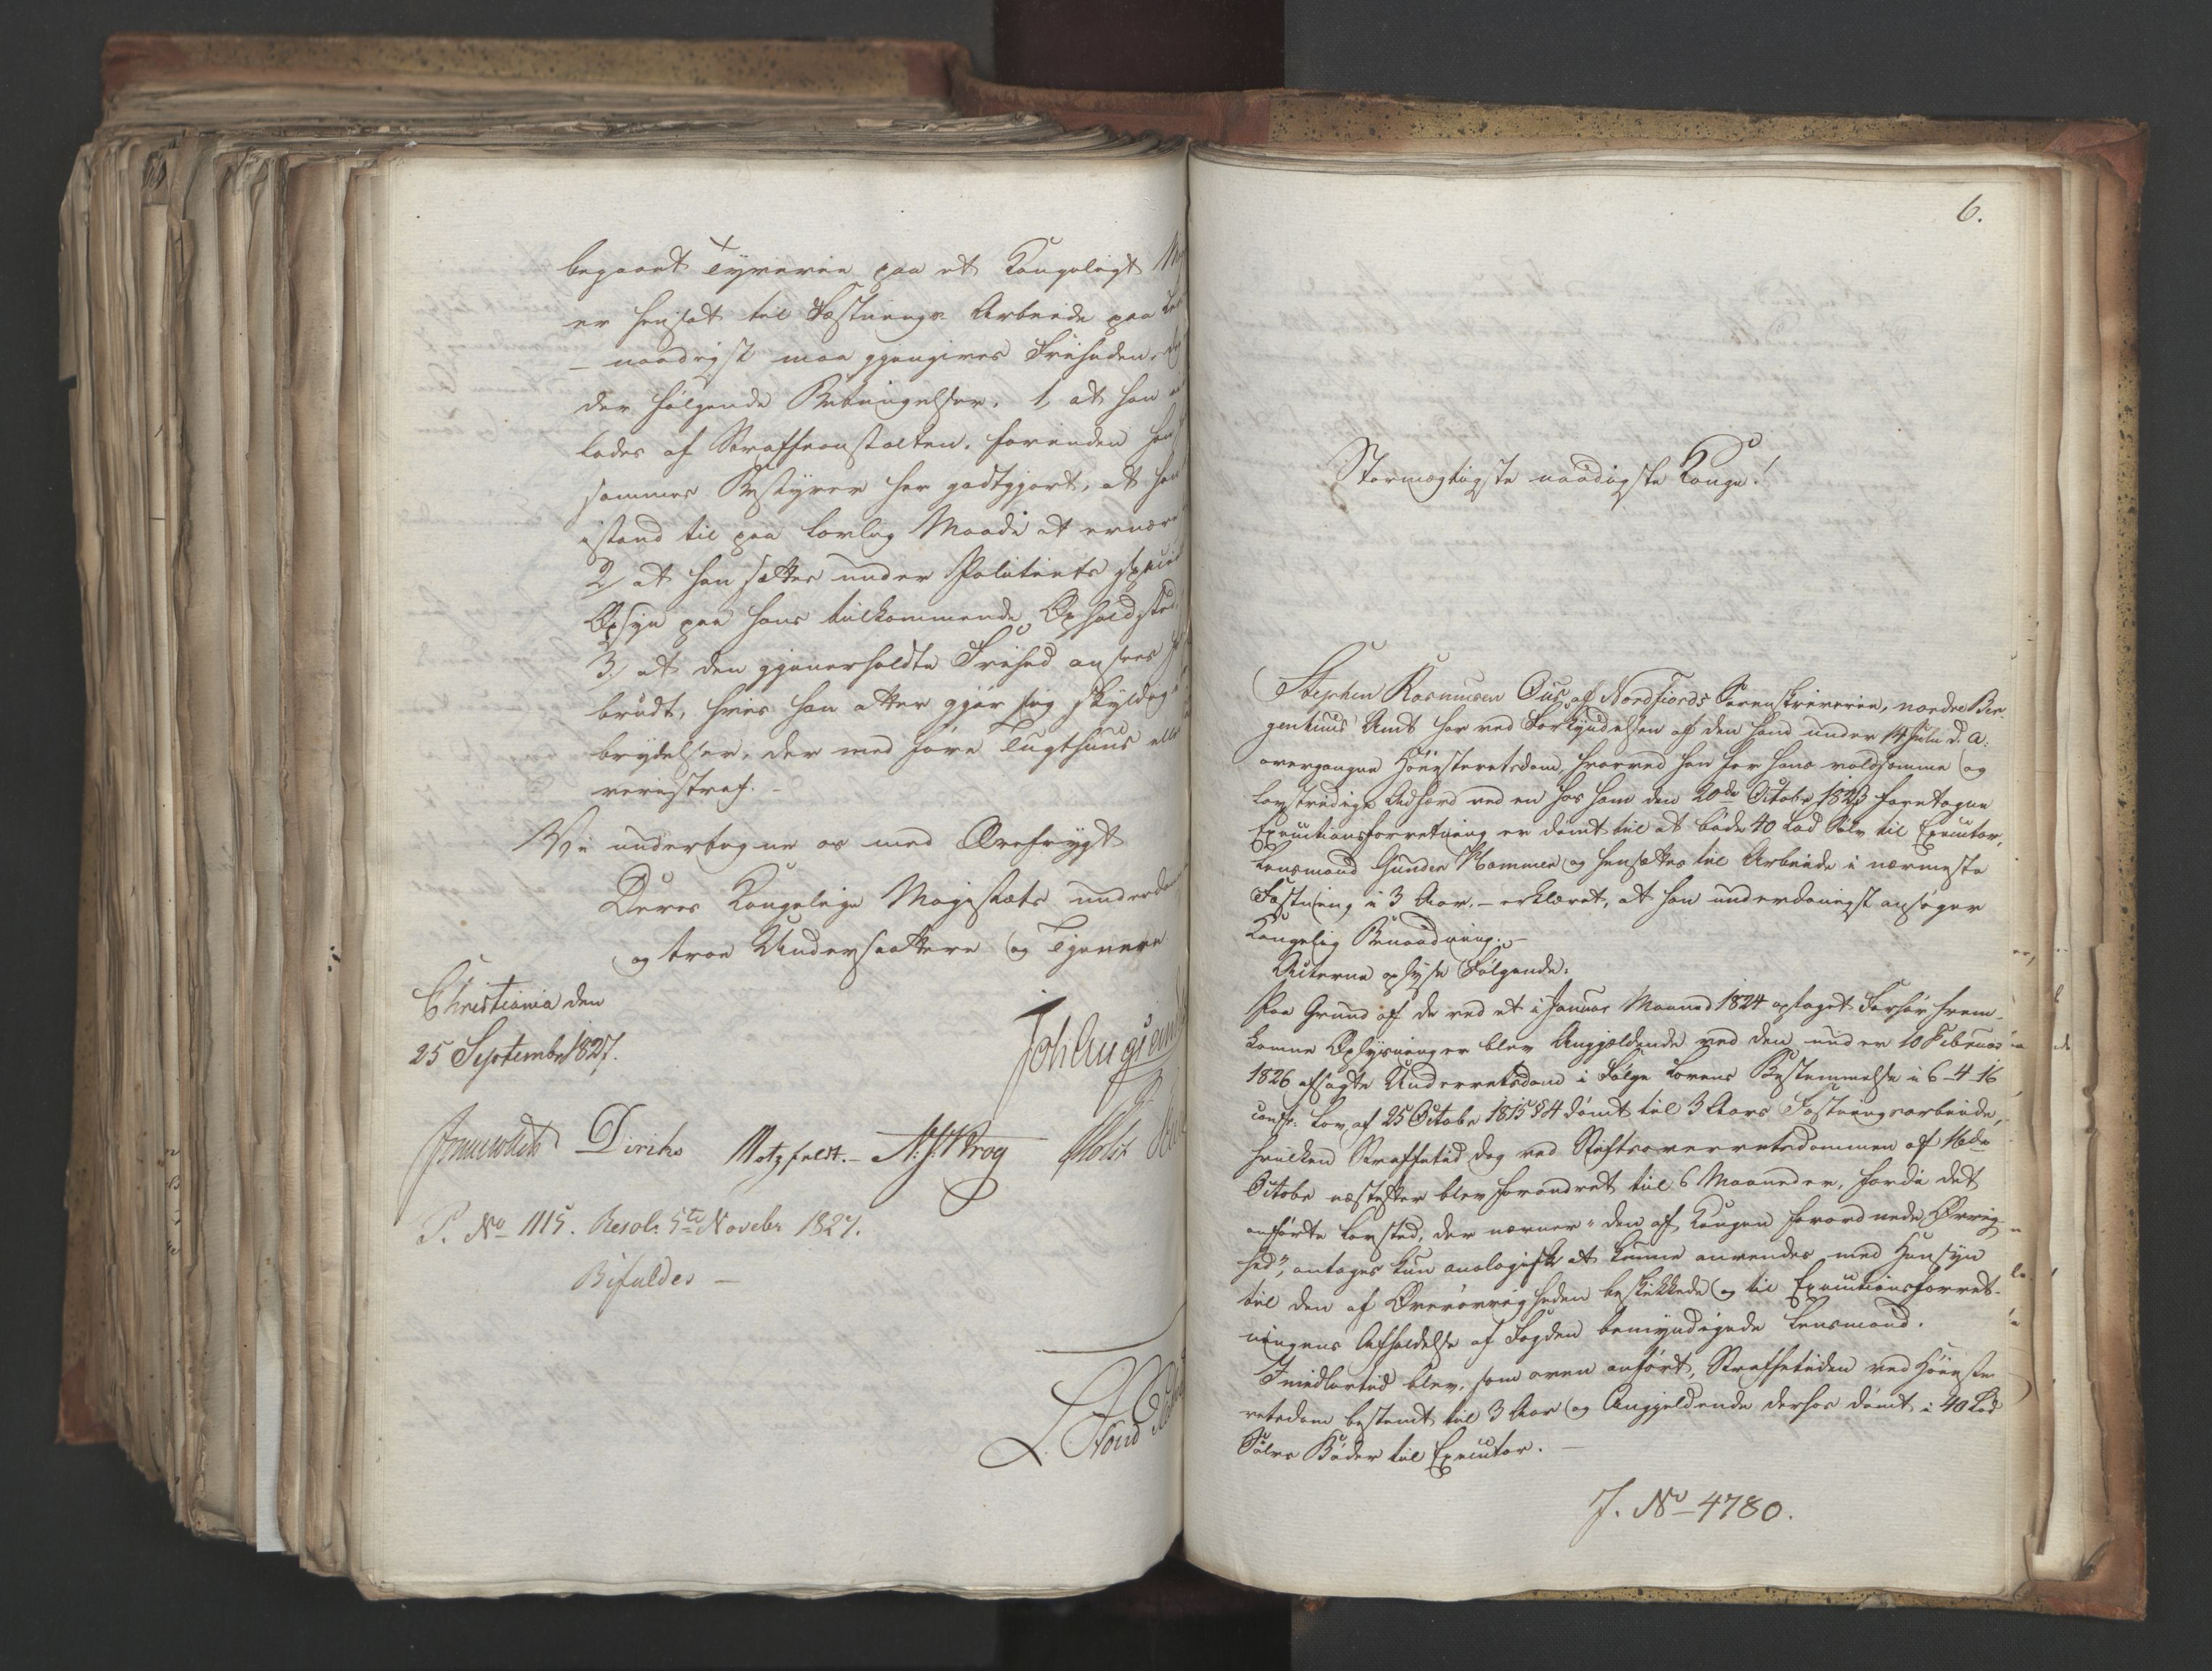 begaaet Tyverie paa et Kongeligt
er hensat til Fæstnings Arbeide paa
– naadigst maa gjengives Friheden,
der følgende Betingelser. 1, at han
lades af Straffeanstalten, forinden
sammes Bestyrer har godtgjort, at han
istand til paa lovlig Maade at ernære
2, at han sættes under Politiets
Opsyn paa hans tilkommende Opholdssted
3, at den gjenerholdte Frihed ansees
brudt, hvis han atter gjør sig skyldig
brydelser, der medføre Tugthuus
veriestraf. –
Vi undertegne os med Ærefrygt
Deres Kongelige Majestæts
og troe Undersaattere og Tjenere
Christiania den
25 September 1827.
Diriks Motzfeldt. – Krog Holst
P. No 1115. Resol: 5te Novebr 1827.
Bifaldes –
6.
Stormægtigste naadigste Konge!
Stephen Rasmusen Ous, af Nordfiords Sorenskriverie, nordre Ber-
genhuus Amt har ved Forkyndelsen af den ham under 14 Juli d. A.
overgangne Høiesteretsdom, hvorved han for hans voldsomme og
lovstridige Adfærd ved en hos ham den 20de Octobr 1823 foretagen
Executionsforretning er dømt til at bøde 40 Lod Sølv til Executor,
Lensmand Gunder Hammer og hensættes til Arbeide i nærmeste
Fæstning i 3 Aar, – erklæret, at han underdanigst ansøger
Kongelig Benaadning. –
Acterne oplyse Følgende:
Paa Grund af de ved et i Januar Maaned 1824 optaget Forhør frem-
komne Oplysninger blev Angjældende ved den under 10 Februar
1826 afsagte Underretsdom i Følge Lovens Bestemmelse i 6–4–16
confr. Lov af 25 Octobr 1815 § 4 dømt til 3 Aars Fæstningsarbeide,
hvilken Straffetid dog ved Stiftsoverretsdommen af 16de
Octobr næstefter blev forandret til 6 Maaneder, fordi det
anførte Lovsted, der nævner "den af Kongen forordnede Øvrig-
hed", antages kun analogisk at kunne anvendes med Hensyn
til den af Overøvrigheden beskikkede og til Executionsforret-
ningens Afholdelse af Fogden bemyndigede Lensmand.
Imidlertid blev, som oven anført, Straffetiden ved Høieste-
retsdom bestemt til 3 Aar og Angjeldende derhos dømt i 40 Lod
Sølvs Bøder til Executor. –
J. No 4780.